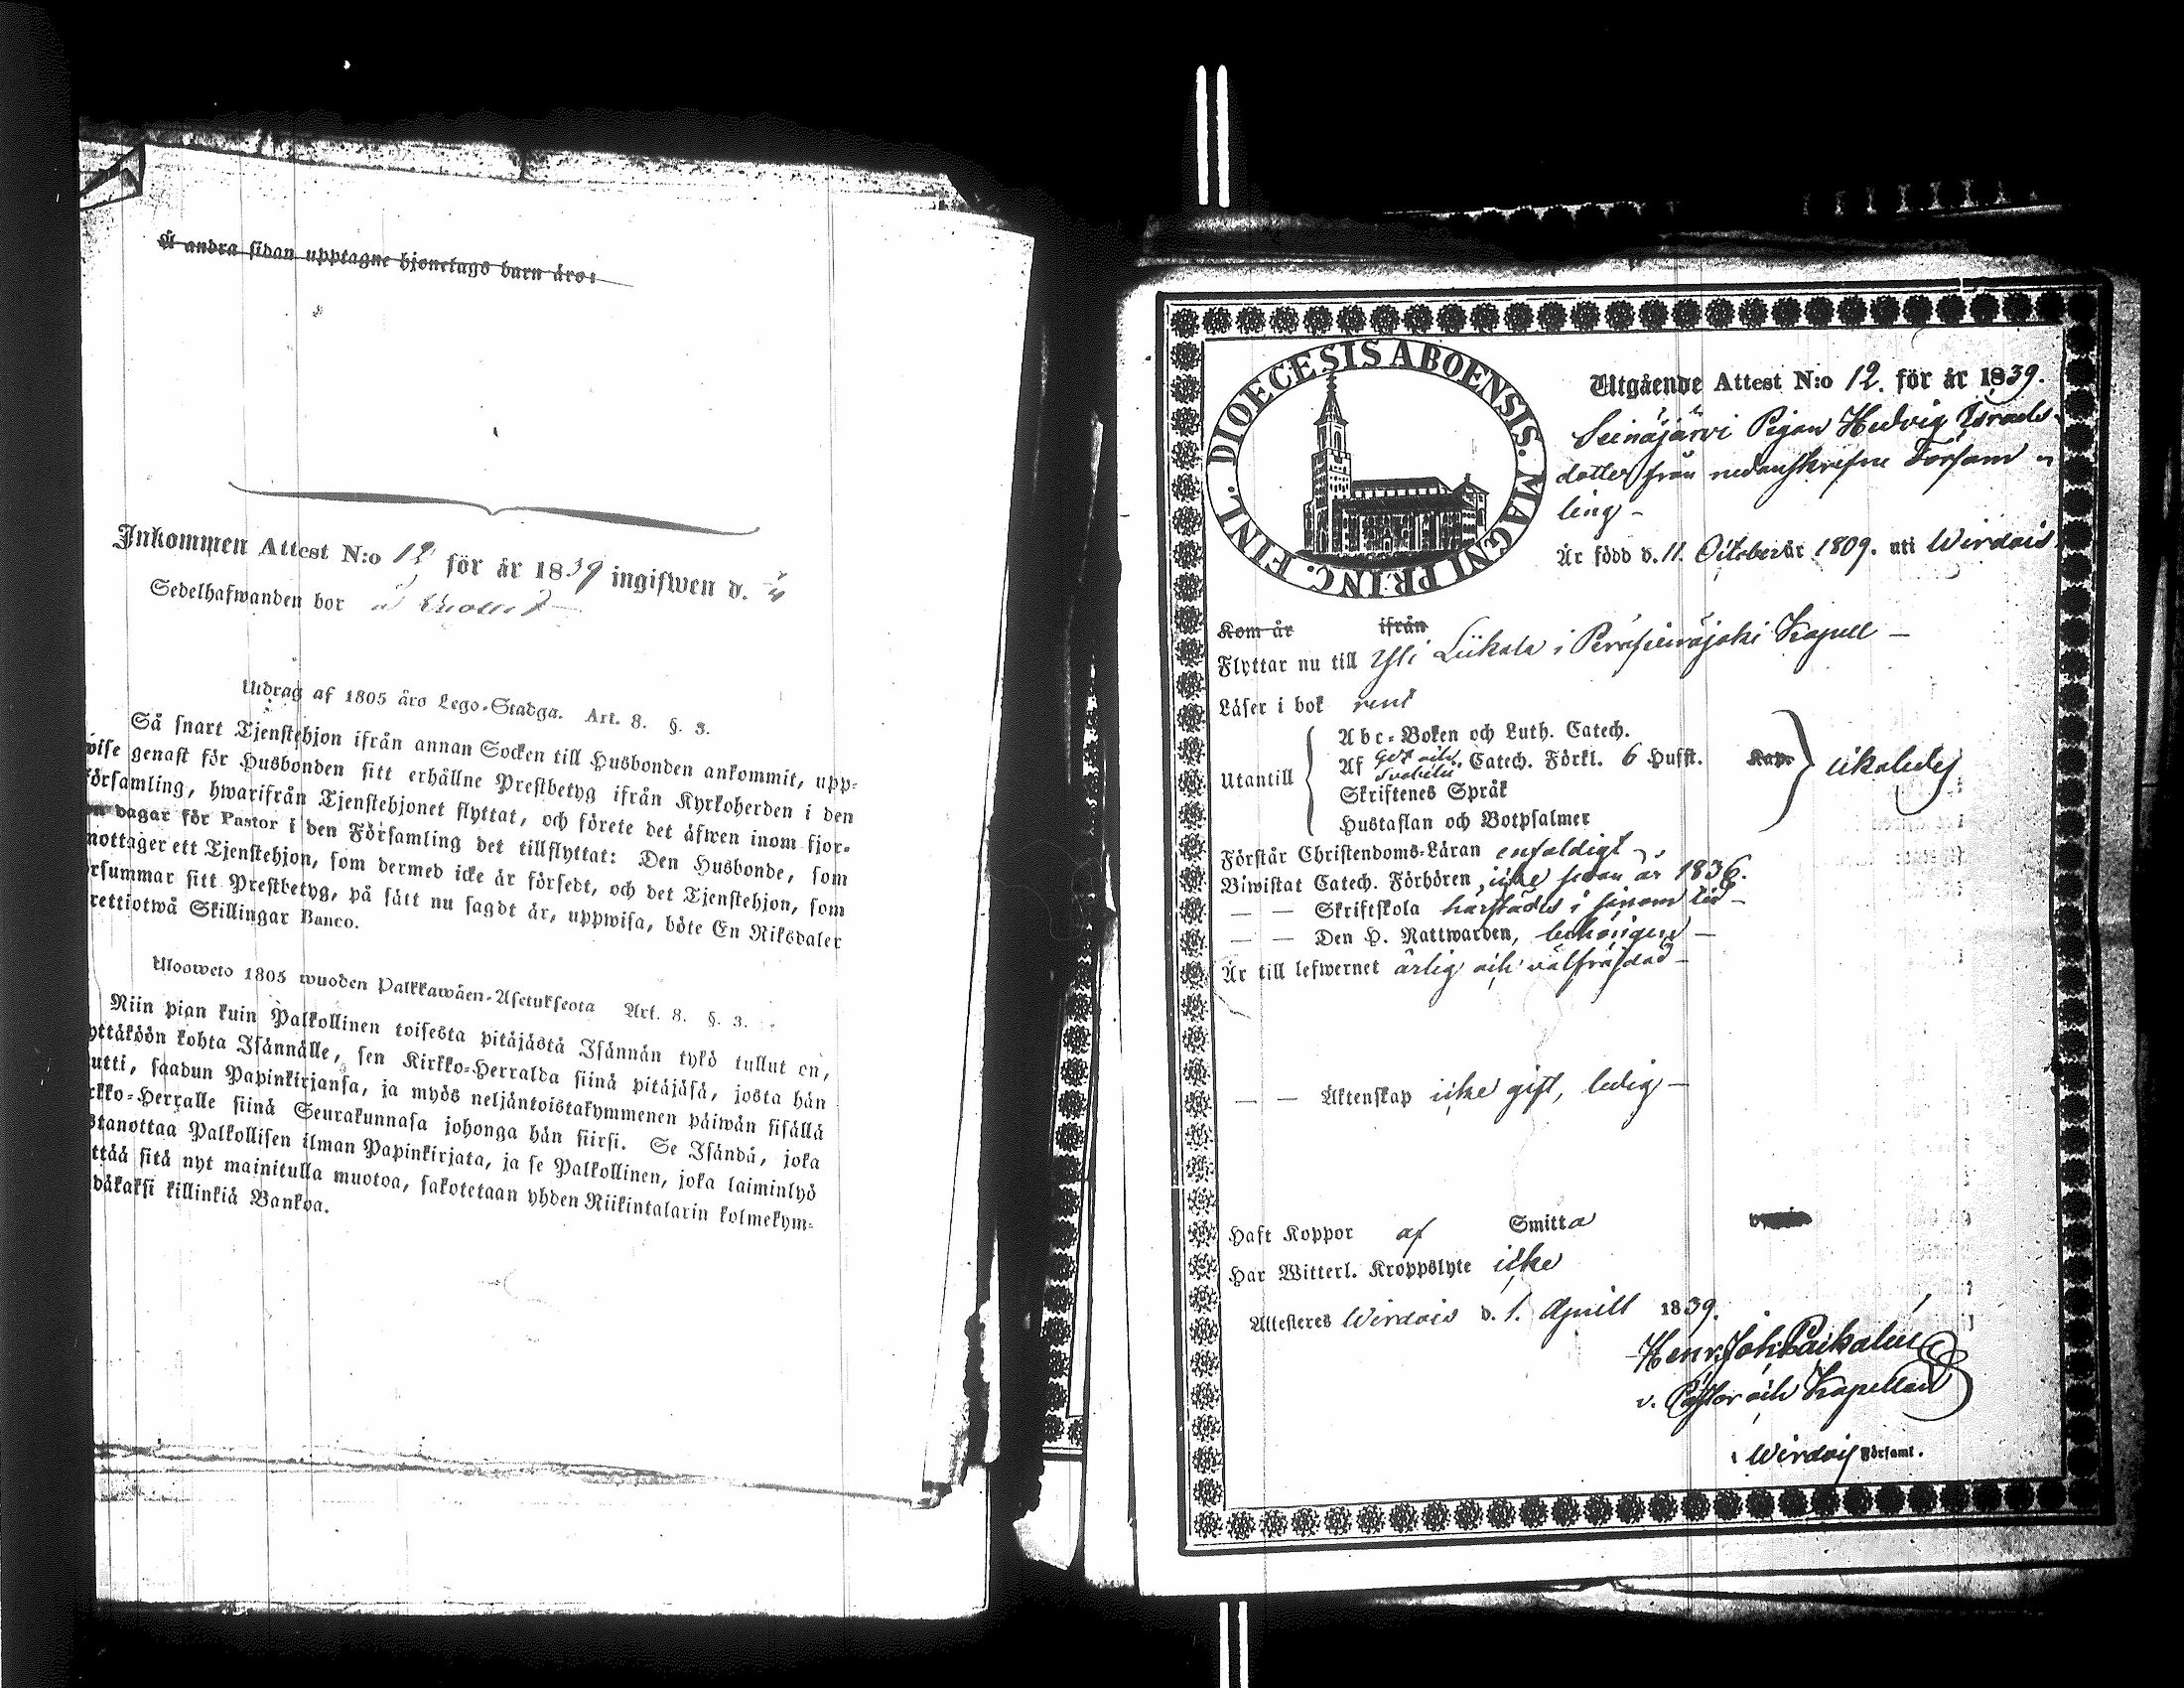 Å andra sidan upptagne hjonelags barn äro:
Inkommen Attest N:o 12 för år 1839 ingifwen d.
Sedelhafwanden bor å
Utdrag af 1805 års Lego-Stadga. Art. 8. §. 3.
Så snart Tjenstehjon ifrån annan Socken till Husbonden ankommit, upp-
wise genast för Husbonden sitt erhållne Prestbetyg ifrån Kyrkoherden i den
församling, hwarifrån Tjenstehjonet flyttat, och förete det äfwen inom fjor-
dagar för Pastor i den Församling det tillflyttat: Den Husbonde, som
mottager ett Tjenstehjon, som dermed icke är försedt, och det Tjenstehjon, som
rsummar sitt Prestbetyg, på sätt nu sagdt är, uppwisa, böte En Riksdaler
rettiotwå Skillingar Banco.
Ulosweto 1805 wuoden Palkkawäen-Asetuksesta Art. 8. §. 3.
Niin pian kuin Palkollinen toisesta pitäjästä Isännän tykö tullut on,
yttäköön kohta Isännälle, sen Kirkko-Herralda siinä pitäjäsä, josta hän
utti, saadun Papinkirjansa, ja myös neljäntoistakymmenen päiwän sisällä
rkko-Herralle siinä Seurakunnasa johonga hän siirsi. Se Isändä, joka
stanottaa Palkollisen ilman Papinkirjata, ja se Palkollinen, joka laiminlyö
ttää sitä nyt mainitulla muotoa, sakotetaan yhden Riikintalarin kolmekym-
däkaksi killinkiä Bankoa.
DIOECESIS ABOENSIS. MAGNI PRINC. FINL.
Utgående Attest N:o 12. för år 1839.
Seinäjärvi Pigan Hedvig Israels-
dotter från nedanskrifne Försam-
ling -
Är född d. 11. October år 1809. uti Wirdois
Kom år ifrån
Flyttar nu till Yli Liikala i Peräseinäjoki Kapell -
Läser i bok rent
Abc-Boken och Luth. Catech.
Utantill Af Catech. Förkl. 6 Hufst. Kap.
Skriftenes Språk
Hustaflan och Botpsalmer
Förstår Christendoms-Läran enfaldigt
Biwistat Catech. Förhören, icke sedan år 1836.
— — Skriftskola härstädes i sinom tid -
— — Den H. Nattwarden, behörigen -
Är till lefwernet ärlig och välfräjdad -
— — Äktenskap icke gift, ledig -
Haft Koppor af Smitta
Har Witterl. Kroppslyte icke
Attesteres Wirdois d. 1. Aprill 1839.
Henr. Joh.
v. Pastor och Kapellan
i Wirdois Församl.